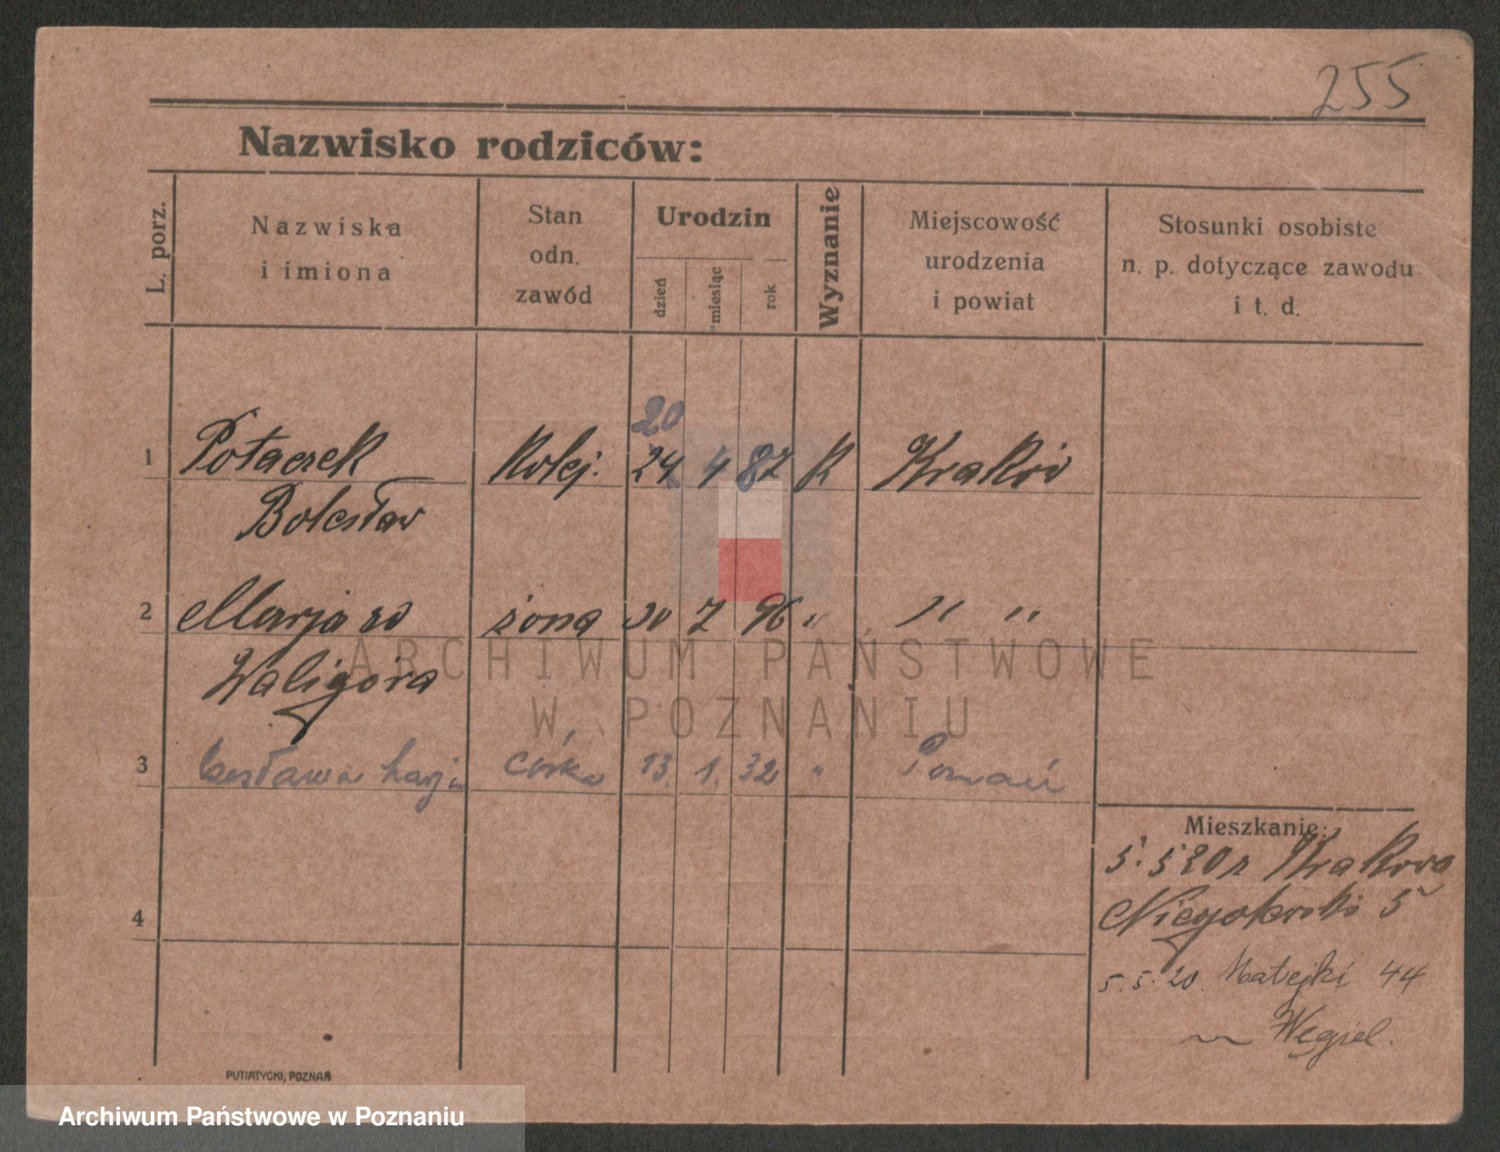 255
Nazwisko rodziców:
L. porz.
Nazwiska
i imiona
Stan
odn.
zawód
Urodzin
dzień
miesiąc
rok
Wyznanie
Miejscowość
urodzenia
i powiat
Stosunki osobiste
n. p. dotyczące zawodu
i t. d.
20
1 Potaczek Kolej. 24 4 87 K Kraków
Bolesław
2 Marja zd żona 30 7 96 " " "
Waligóra
3 Czesława Marja córka 13. 1. 32 " Poznań
4
Mieszkanie:
5. 5 20 z Krakowa
5
5. 5. 20. Matejki 44
Węgiel.
PUTIATYCKI, POZNAŃ
ARCHIWUM PAŃSTWOWE
W POZNANIU
Archiwum Państwowe w Poznaniu